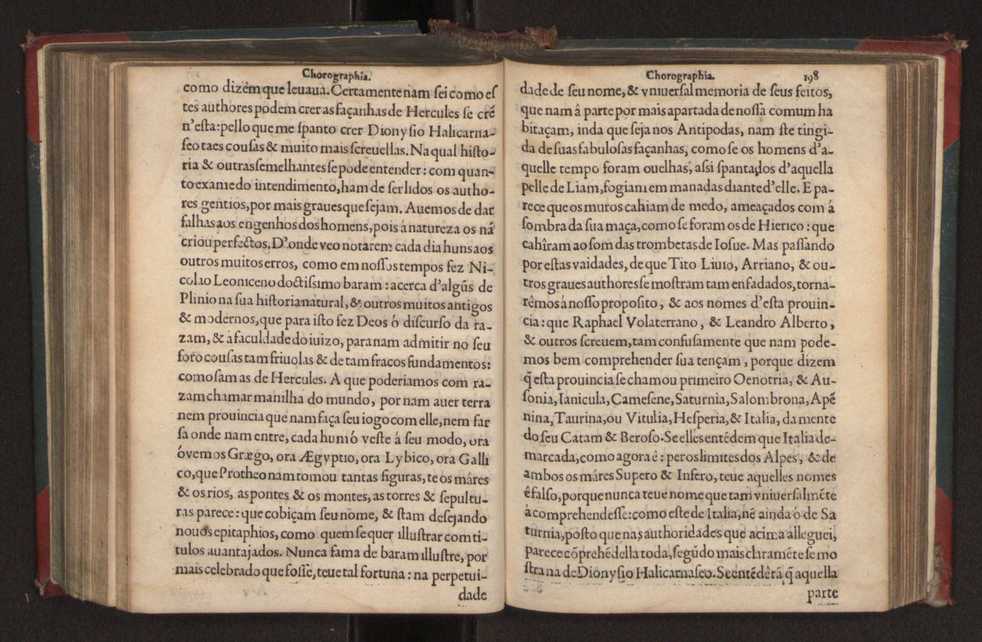 Chorographia.
como dizẽm que leuaua. Certamente nam sei como es
tes authores podem crer as façanhas de Hercules se crẽ
n'esta: pello que me spanto crer Dionysio Halicarna-
seo taes cousas & muito mais screuellas. Na qual histo-
ria & outras semelhantes se pode entender: com quan-
to exame do intendimento, ham de ser lidos os autho-
res gentios, por mais graues que sejam. Auemos de dar
falhas aos engenhos dos homens, pois â natureza os nã
criou perfectos, D'onde veo notarem cada dia huns aos
outros muitos erros, como em nossos tempos fez Ni-
colao Leoniceno doctissimo baram: acerca d'algũs de
Plinio na sua historia natural, & outros muitos antigos
& modernos, que para isto fez Deos ó discurso da ra-
zam, & a faculdade do iuizo, para nam admitir no seu
foro cousas tam friuolas & de tam fracos fundamentos:
como sam as de Hercules. A que poderiamos com ra-
zam chamar manilha do mundo, por nam auer terra
nem prouincia que nam faça seu iogo com elle, nem far
sa onde nam entre, cada hum ó veste á seu modo, ora
óvemos Græego, ora Ægyptio, ora Lybico, ora Galli
co, que Protheo nam tomou tantas figuras, te os máres
& os rios, as pontes & os montes, as torres & sepultu-
ras parece: que cobiçam seu nome, & stam desejando
nouos epitaphios, como quem se quer illustrar com ti-
tulos auantajados. Nunca fama de baram illustre, por
mais celebrado que fosse, teue tal fortuna: na perpetui-
dade
Chorographia. 198
dade de seu nome, & vniuersal memoria de seus feitos,
que nam â parte por mais apartada de nossa comum ha
bitaçam, inda que seja nos Antipodas, nam ste tingi-
da de suas fabulosas façanhas, como se os homens d'a-
quelle tempo foram ouelhas, assi spantados d'aquella
pelle de Liam, fogiam em manadas diante d'elle. E pa-
rece que os muros cahiam de medo, ameaçados com á
sombra da sua maça, como se foram os de Hierico: que
cahîram ao som das trombetas de Iosue. Mas passando
por estas vaidades, de que Tito Liuio, Arriano, & ou-
tros graues authores se mostram tam enfadados, torna-
rêmos à nosso proposito, & aos nomes d'esta prouin-
cia: que Raphael Volaterrano, & Leandro Alberto,
& outros screuem, tam confusamente que nam pode-
mos bem comprehender sua tençam, porque dizem
q̃ esta prouincia se chamou primeiro Oenotria, & Au-
sonia, Ianicula, Camesene, Saturnia, Salombrona, Apẽ
nina, Taurina, ou Vitulia, Hesperia, & Italia, da mente
do seu Catam & Beroso. Se elles entẽdem que Italia de-
marcada, como agora é: peros limites dos Alpes, & de
ambos os máres Supero & Infero, teue aquelles nomes
é falso, porque nunca teue nome que tam vniuersalmẽte
à comprehendesse: como este de Italia, nẽ ainda ó de Sa
turnia, posto que nas authoridades que acima alleguei,
parece cõprehẽdella toda, segũdo mais claramẽte se mo
stra na de Dionysio Halicarnaseo. Se entẽdẽrã q̃ aquella
parte